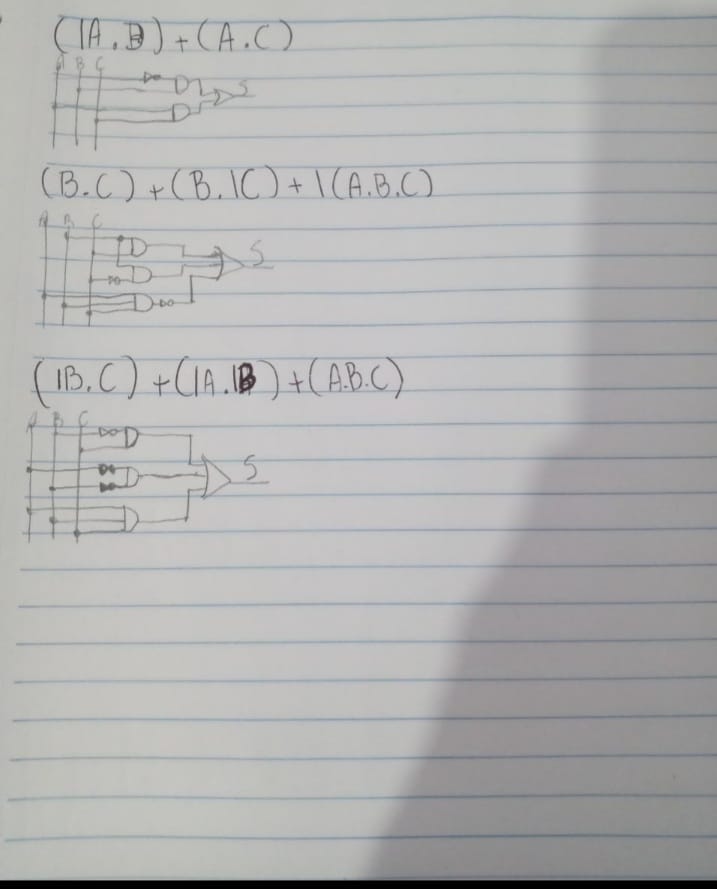 (|A.B)+(A.C)
A B C
S
(B.C)+(B.|C)+|(A.B.C)
A B C
S
(|B.C)+(|A.|B)+(A.B.C)
A B C
S